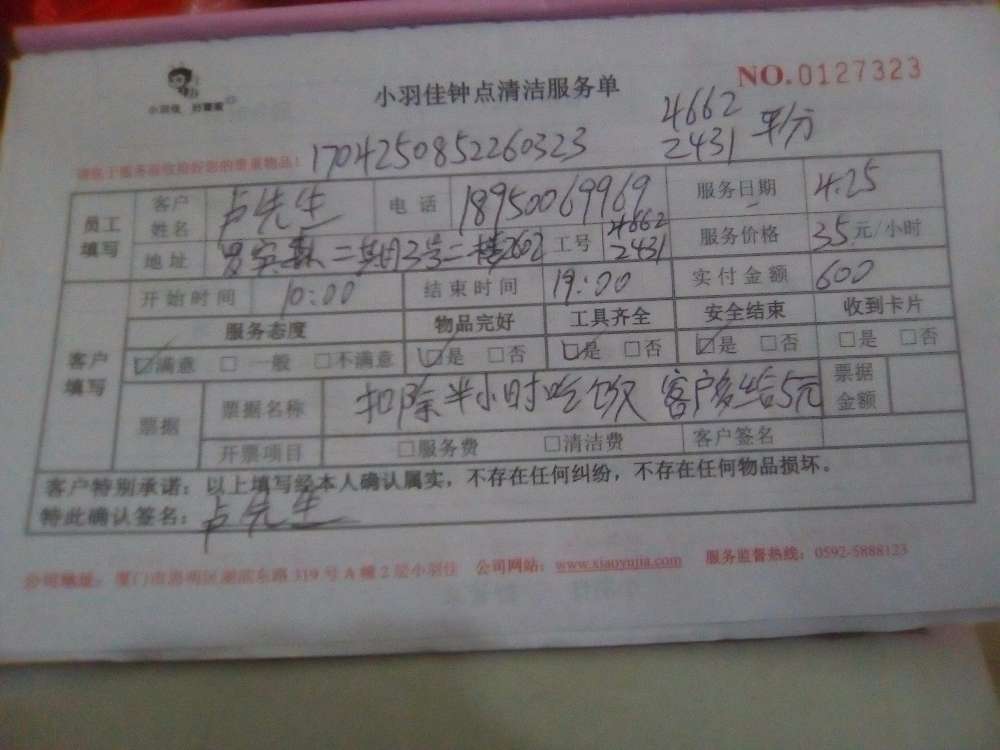 小羽佳钟点清洁服务单
NO.0127323
小羽佳 好管家
4662
2431 平分
请您于服务前收拾好您的贵重物品! 1704250852260323
员工填写 客户姓名 卢先生 电话 18950069969 服务日期 4.25
地址 罗宾森二期3号二楼2602 工号 4662 2431 服务价格 35元/小时
客户填写 开始时间 10:00 结束时间 19:00 实付金额 600
服务态度 物品完好 工具齐全 安全结束 收到卡片
☑满意 □一般 □不满意 ☑是 □否 ☑是 □否 ☑是 □否 □是 □否
票据 票据名称 扣除半小时吃饭 客户多给5元 票据金额
开票项目 □服务费 □清洁费 客户签名
客户特别承诺:以上填写经本人确认属实,不存在任何纠纷,不存在任何物品损坏。
特此确认签名:卢先生
公司地址:厦门市思明区湖滨东路319号A幢2层小羽佳 公司网站:www.xiaoyujia.com 服务监督热线:0592-5888123